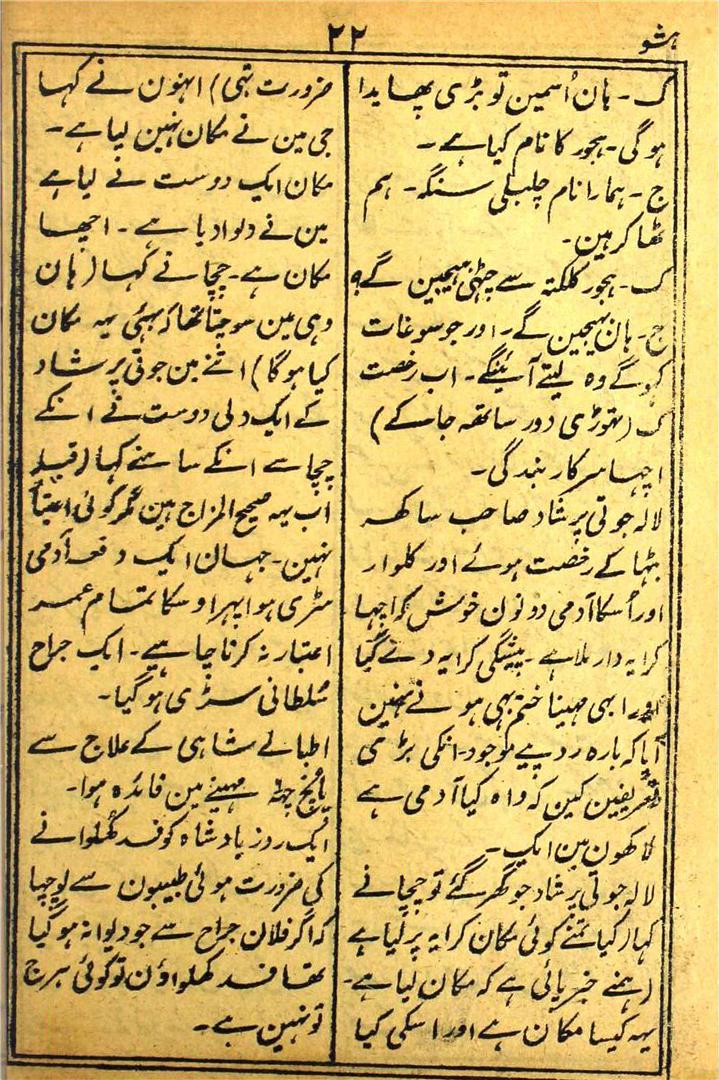 ہشو
۲۲
ک ۔ ہان اُسمین تو بڑی پھایدا
ہوگی ۔ ہجور کا نام کیا ہے ۔
ج ۔ ہمارا نام چلبلی سنگہ ۔ ہم
ٹھا کر ہین ۔
ک ۔ ہجور کلکتہ سے چٹہی بہیجین گے ؟
ج ۔ ہان بہیجین گے ۔ اور جو سوغات
کہوگے وہ لیتے آئینگے ۔ اب رخصت
ک (تہوڑی دور ساتھہ جاکے)
اچہا سرکار بندگی ۔
لالہ جوتی پرشاد صاحب ساکھہ
بٹہا کے رخصت ہوئے اور کلوار
اور اُسکا آدمی دونون خوش کہ اچہا
کرایہ دار ملا ہے ۔ پیشگی کرایہ دے گیا
اور ابہی مہینا ختم بہی ہونے نہین
آیا کہ بارہ روپیے موجود ۔ انکی بڑی
تعریفین کین کہ واہ کیا آدمی ہے
لاکھون مین ایک ۔
لالہ جوتی پرشاد جو گھر گئے تو چچا نے
کہا (کیا تمنے کوئی مکان کرایہ پر لیا ہے
(ہمنے خبر پائی ہے کہ مکان لیا ہے ۔
یہہ کیسا مکان ہے اور اسکی کیا
ضرورت تہی) اُنہون نے کہا
جی مین نے مکان نہین لیا ہے ۔
مکان ایک دوست نے لیا ہے
مین نے دلوا دیا ہے ۔ اچھا
مکان ہے ۔ چچا نے کہا (ہان
وہی مین سوچتا تھا کہ بہئی یہہ مکان
کیا ہوگا) اتنے مین جوتی پرشاد
کے ایک دلی دوست نے انکے
چچا سے انکے سامنے کہا (قبلہ
اب یہہ صحیح المزاج ہین مگر کوئی اعتبار
نہین ۔ جہان ایک دفعہ آدمی
سڑی ہوا پہر اوسکا تمام عمر
اعتبار نہ کرنا چاہیے ۔ ایک جراح
سُلطانی سڑی ہوگیا ۔
اطبائے شاہی کے علاج سے
پانچ چہہ مہینے مین فائدہ ہوا ۔
ایک روز بادشاہ کو فصد کُھلوانے
کی ضرورت ہوئی طبیبون سے پوچہا
کہ اگر فلان جراح سے جو دیوانہ ہوگیا
تھا فصد کھلواؤن تو کوئی ہرج
تو نہین ہے ۔